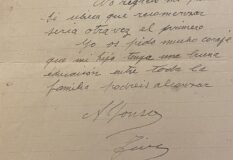 No regreso mi p
ti ubiera que recomenzar
seria otravez el primero
Yo os pido mucho coraje
que mi hijo tenga una buena
educación entre toda la
familia podreis alcanzar
Alfonso